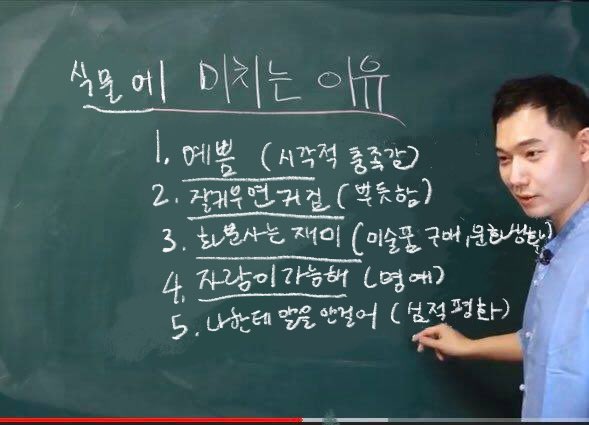 식물에 미치는 이유
1. 예쁨 (시각적 충족감)
2. 잘키우면 귀걸 (뿌듯함)
3. 화분사는 재미 (미술품 구매, 문화생활)
4. 자랑이 가능해 (명예)
5. 나한테 말을 안걸어 (심적평화)